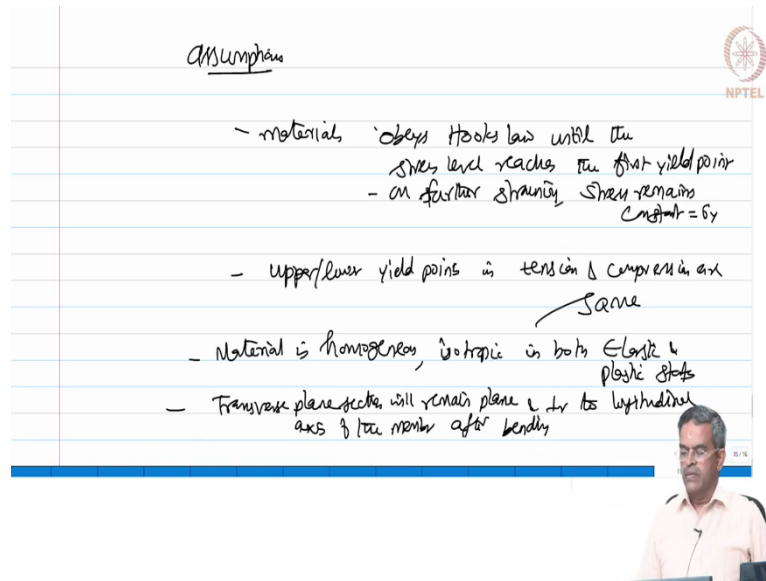 assumptions
NPTEL
- materials obeys Hooks law until the
stress level reaches the first yield point
- on further straining, stress remains
constant = σy
- upper/lower yield points in tension & compression are
same
- Material is homogeneous, isotropic in both Elastic &
plastic states
- Transverse plane section will remain plane & ⊥r to longitudinal
axis of the member after bending
35/36